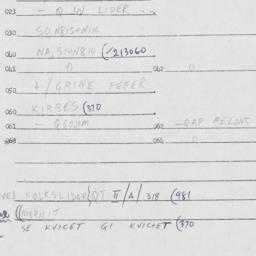 023 - Q IN LIDER - .
030 SONBIS+NIK
040 NA, SI4N814 (/213060
041 0 042 0
050 +/GRINE FEFER
060 KIRBES (370
061 - QGOJIM 062 - QAP MELONS
063 0
VE) FOLKSLIDER{QT II/A/318 (981
SE KVICET QI KVICET (370